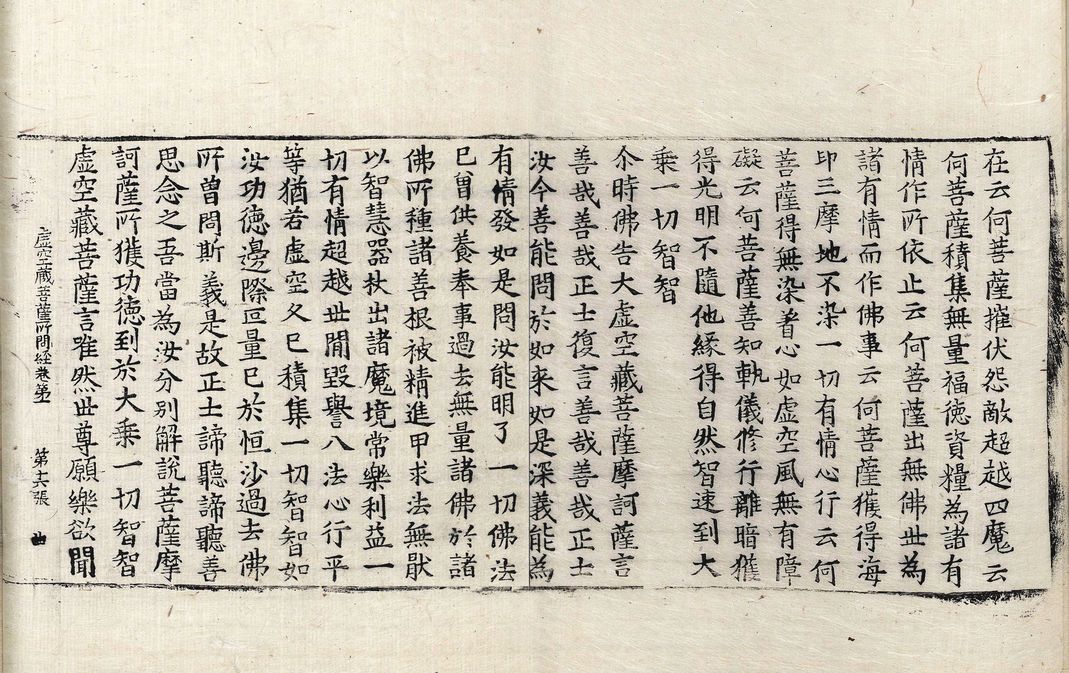 在云何菩薩摧伏怨敵超越四魔云
何菩薩積集無量福德資糧為諸有
情作所依止云何菩薩出無佛世為
諸有情而作佛事云何菩薩獲得海
印三摩地不染一切有情心行云何
菩薩得無染着心如虛空風無有障
礙云何菩薩善知軌儀修行離暗獲
得光明不隨他緣得自然智速到大
乘一切智智
尒時佛告大虛空藏菩薩摩訶薩言
善哉善哉正士復言善哉善哉正士
汝今善能問於如來如是深義能為
有情發如是問汝能明了一切佛法
已曾供養奉事過去無量諸佛於諸
佛所種諸善根被精進甲求法無猒
以智慧器杖出諸魔境常樂利益一
切有情超越世間毀譽八法心行平
等猶若虛空久已積集一切智智如
汝功德邊際叵量已於恒沙過去佛
所曾問斯義是故正士諦聽諦聽善
思念之吾當為汝分別解說菩薩摩
訶薩所獲功德到於大乘一切智智
虛空藏菩薩言唯然世尊願樂欲聞
虛空藏菩薩所問經卷第一 第十六張 曲